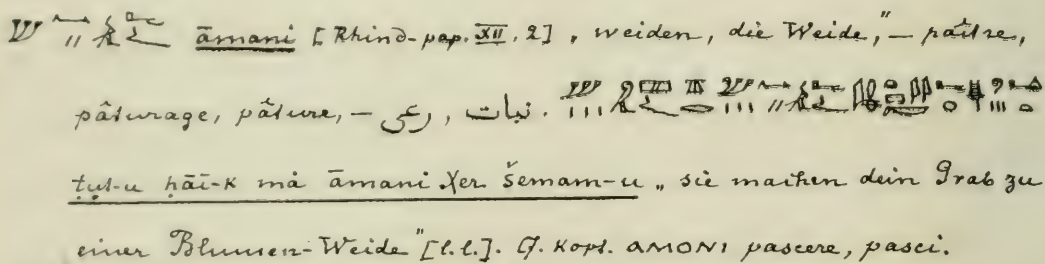 āmani [Rhind-pap. XII. 2] „ weiden, die Weide," – paître,
pâturage, pâture, – رعى , نبات .
ṭuṭ-u ḥāī-k má āmani χer šemam-u „ sie machen dein Grab zu
einer Blumen-Weide" [l.l.]. Cf. Kopt. ⲁⲙⲟⲛⲓ pascere, pasci.